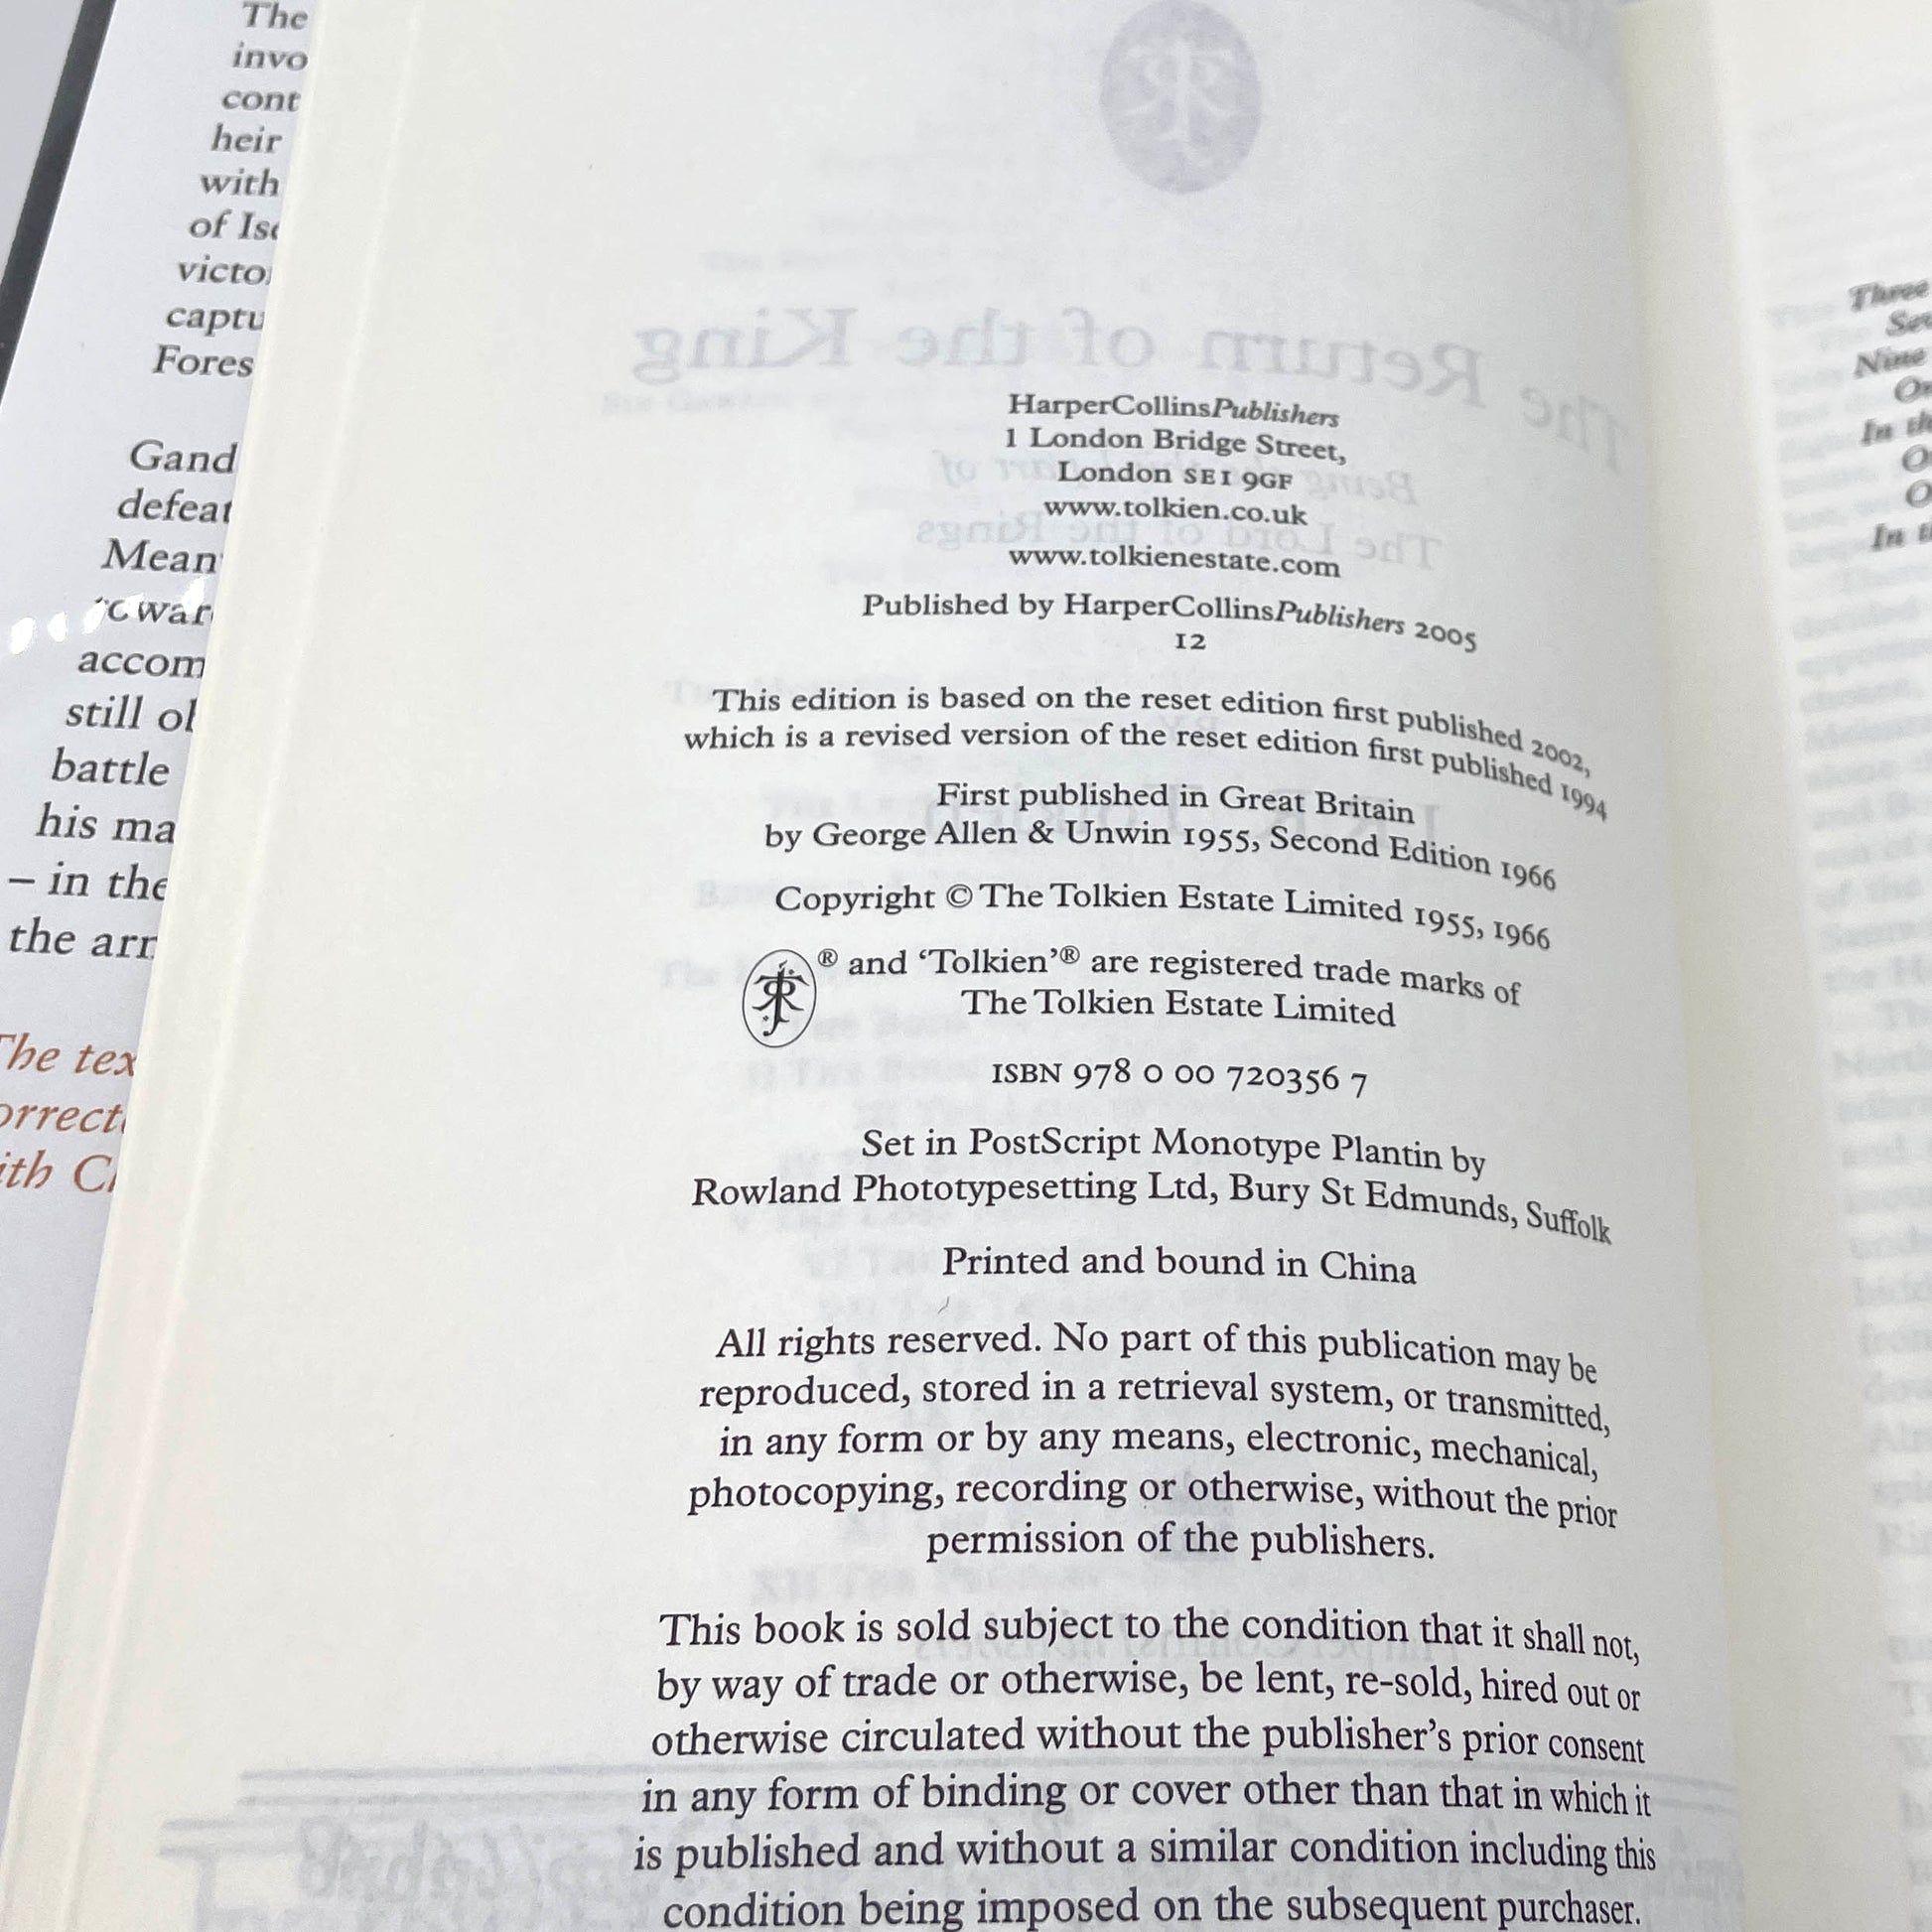 The
invo
cont
heir
with
of Is
victo
captu
Fores
Gand
defeat
Mean
war
accom
still
battle
his ma
– in the
the arr
The tex
orrect
ith C
The Return of the King
Being the third part of
The Lord of the Rings
HarperCollinsPublishers
1 London Bridge Street,
London SE1 9GF
www.tolkien.co.uk
www.tolkienestate.com
Published by HarperCollinsPublishers 2005
12
This edition is based on the reset edition first published 2002,
which is a revised version of the reset edition first published 1994
First published in Great Britain
by George Allen & Unwin 1955, Second Edition 1966
Copyright © The Tolkien Estate Limited 1955, 1966
® and ‘Tolkien’® are registered trade marks of
The Tolkien Estate Limited
ISBN 978 0 00 720356 7
Set in PostScript Monotype Plantin by
Rowland Phototypesetting Ltd, Bury St Edmunds, Suffolk
Printed and bound in China
All rights reserved. No part of this publication may be
reproduced, stored in a retrieval system, or transmitted,
in any form or by any means, electronic, mechanical,
photocopying, recording or otherwise, without the prior
permission of the publishers.
This book is sold subject to the condition that it shall not,
by way of trade or otherwise, be lent, re-sold, hired out or
otherwise circulated without the publisher’s prior consent
in any form of binding or cover other than that in which it
is published and without a similar condition including this
condition being imposed on the subsequent purchaser.
Three
Se
Nine
On
In th
O
O
In t